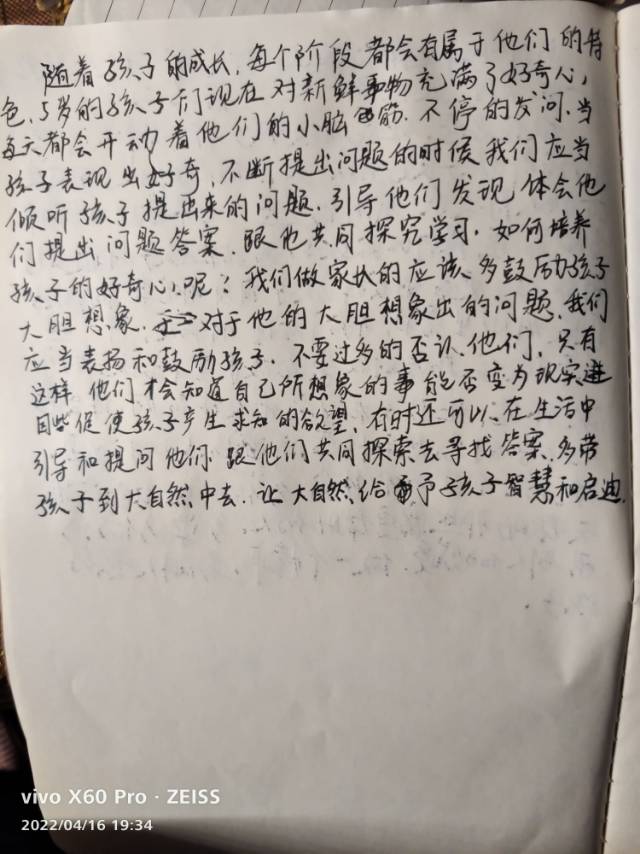 随着孩子的成长,每个阶段都会有属于他们的特
色,5岁的孩子们现在对新鲜事物充满了好奇心,
每天都会开动着他们的小脑筋.不停的发问.当
孩子表现出好奇,不断提出问题的时候我们应当
倾听孩子提出来的问题.引导他们发现体会他
们提出问题答案.跟他共同探究学习,如何培养
孩子的好奇心呢?我们做家长的应该多鼓励孩子
大胆想象.对于他的大胆想象出的问题,我们
应当表扬和鼓励孩子.不要过多的否认他们,只有
这样他们才会知道自己所想象的事能否变为现实进
因此促使孩子产生求知的欲望,有时还可以在生活中
引导和提问他们.跟他们共同探索去寻找答案.多带
孩子到大自然中去.让大自然给予孩子智慧和启迪.
vivo X60 Pro · ZEISS
2022/04/16 19:34